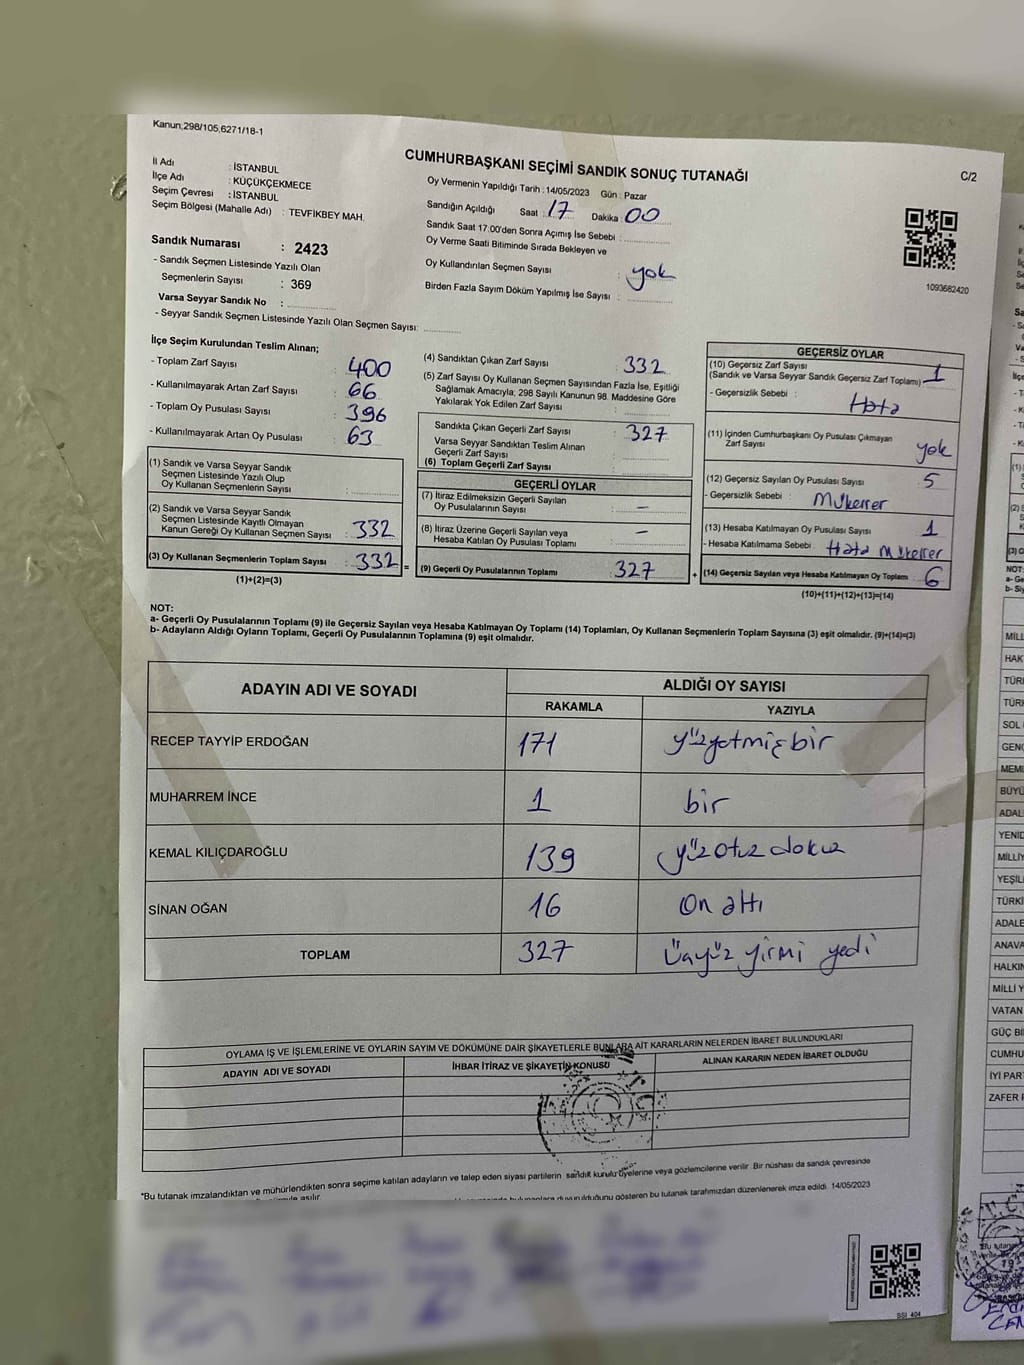 Kanun,298/105,6271/18-1
CUMHURBAŞKANI SEÇİMİ SANDIK SONUÇ TUTANAĞI
C/2
İl Adı : İSTANBUL
İlçe Adı : KÜÇÜKÇEKMECE
Seçim Çevresi : İSTANBUL
Seçim Bölgesi (Mahalle Adı) : TEVFİKBEY MAH.
Sandık Numarası : 2423
- Sandık Seçmen Listesinde Yazılı Olan
Seçmenlerin Sayısı : 369
Varsa Seyyar Sandık No :
- Seyyar Sandık Seçmen Listesinde Yazılı Olan Seçmen Sayısı:
Oy Vermenin Yapıldığı Tarih : 14/05/2023 Gün : Pazar
Sandığın Açıldığı Saat : 17 Dakika : 00
Sandık Saat 17:00'den Sonra Açımış İse Sebebi :
Oy Verme Saati Bitiminde Sırada Bekleyen ve
Oy Kullandırılan Seçmen Sayısı : yok
Birden Fazla Sayım Döküm Yapılmış İse Sayısı :
1093682420
İlçe Seçim Kurulundan Teslim Alınan;
- Toplam Zarf Sayısı : 400
- Kullanılmayarak Artan Zarf Sayısı : 66
- Toplam Oy Pusulası Sayısı : 396
- Kullanılmayarak Artan Oy Pusulası : 63
(1) Sandık ve Varsa Seyyar Sandık
Seçmen Listesinde Yazılı Olup
Oy Kullanan Seçmenlerin Sayısı :
(2) Sandık ve Varsa Seyyar Sandık
Seçmen Listesinde Kayıtlı Olmayan
Kanun Gereği Oy Kullanan Seçmen Sayısı : 332
(3) Oy Kullanan Seçmenlerin Toplam Sayısı : 332 =
(1)+(2)=(3)
(4) Sandıktan Çıkan Zarf Sayısı : 332
(5) Zarf Sayısı Oy Kullanan Seçmen Sayısından Fazla İse, Eşitliği
Sağlamak Amacıyla; 298 Sayılı Kanunun 98. Maddesine Göre
Yakılarak Yok Edilen Zarf Sayısı :
Sandıkta Çıkan Geçerli Zarf Sayısı : 327
Varsa Seyyar Sandıktan Teslim Alınan
Geçerli Zarf Sayısı :
(6) Toplam Geçerli Zarf Sayısı :
GEÇERLİ OYLAR
(7) İtiraz Edilmeksizin Geçerli Sayılan
Oy Pusulalarının Sayısı : —
(8) İtiraz Üzerine Geçerli Sayılan veya
Hesaba Katılan Oy Pusulası Toplamı : —
(9) Geçerli Oy Pusulalarının Toplamı : 327 +
GEÇERSİZ OYLAR
(10) Geçersiz Zarf Sayısı
(Sandık ve Varsa Seyyar Sandık Geçersiz Zarf Toplamı) : 1
- Geçersizlik Sebebi : Hata
(11) İçinden Cumhurbaşkanı Oy Pusulası Çıkmayan
Zarf Sayısı : yok
(12) Geçersiz Sayılan Oy Pusulası Sayısı : 5
- Geçersizlik Sebebi : Mükerrer
(13) Hesaba Katılmayan Oy Pusulası Sayısı : 1
- Hesaba Katılmama Sebebi : Hata mükerrer
(14) Geçersiz Sayılan veya Hesaba Katılmayan Oy Toplam : 6
(10)+(11)+(12)+(13)=(14)
NOT:
a- Geçerli Oy Pusulalarının Toplamı (9) ile Geçersiz Sayılan veya Hesaba Katılmayan Oy Toplamı (14) Toplamları, Oy Kullanan Seçmenlerin Toplam Sayısına (3) eşit olmalıdır. (9)+(14)=(3)
b- Adayların Aldığı Oyların Toplamı, Geçerli Oy Pusulalarının Toplamına (9) eşit olmalıdır.
ADAYIN ADI VE SOYADI ALDIĞI OY SAYISI
RAKAMLA YAZIYLA
RECEP TAYYİP ERDOĞAN 171 yüzyetmişbir
MUHARREM İNCE 1 bir
KEMAL KILIÇDAROĞLU 139 yüzotuz dokuz
SİNAN OĞAN 16 On altı
TOPLAM 327 Üçyüz yirmi yedi
OYLAMA İŞ VE İŞLEMLERİNE VE OYLARIN SAYIM VE DÖKÜMÜNE DAİR ŞİKAYETLERLE BUNLARA AİT KARARLARIN NELERDEN İBARET BULUNDUKLARI
ADAYIN ADI VE SOYADI İHBAR İTİRAZ VE ŞİKAYETİN KONUSU ALINAN KARARIN NEDEN İBARET OLDUĞU
*Bu tutanak imzalandıktan ve mühürlendikten sonra seçime katılan adayların ve talep eden siyasi partilerin sandık kurulu üyelerine veya gözlemcilerine verilir. Bir nüshası da sandık çevresinde
asılır.
duyurulduğunu gösteren bu tutanak tarafımızdan düzenlenerek imza edildi. 14/05/2023
SSI 404
MİLL
HAK
TÜRK
SOL
GENÇ
MEM
BÜYÜ
ADAL
YENİD
MİLLİY
YEŞİL
TÜRKİ
ADALE
ANAVA
HALKIN
MİLLİ Y
VATAN
GÜÇ Bİ
CUMHU
İYİ PAR
ZAFER P